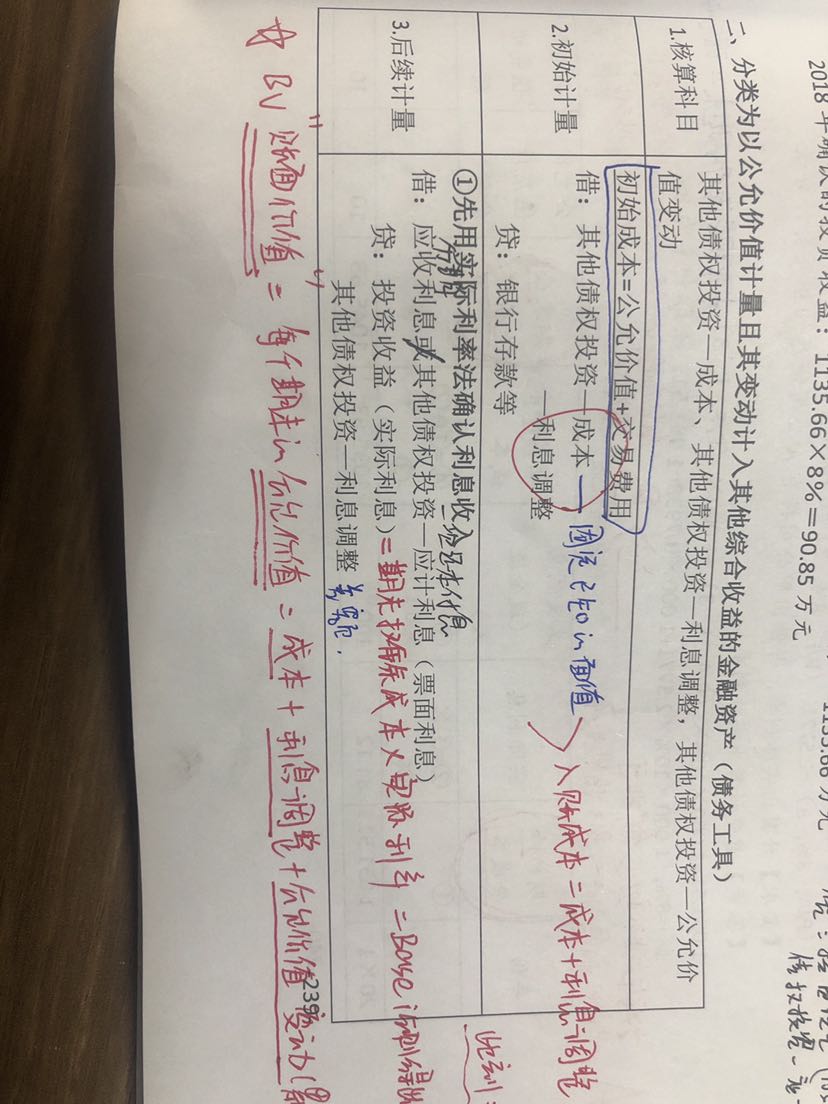 2018年确认的投资收益：1135.66×8%＝90.85 万元
二、分类为以公允价值计量且其变动计入其他综合收益的金融资产（债务工具）
1.核算科目
其他债权投资—成本、其他债权投资—利息调整，其他债权投资—公允价
值变动
2.初始计量
初始成本=公允价值+交易费用
借：其他债权投资—成本 — 固定已知的面值
—利息调整
入账成本=成本+利息调整
贷：银行存款等
3.后续计量
①先用实际利率法确认利息收入
一次还本付息
分期
借：应收利息或其他债权投资—应计利息（票面利息）
贷：投资收益（实际利息）=期初摊余成本×实际利率=
其他债权投资—利息调整 差额.
☆ BV "账面价值" = 每个期末的公允价值 = 成本+利息调整+公允价值变动
239